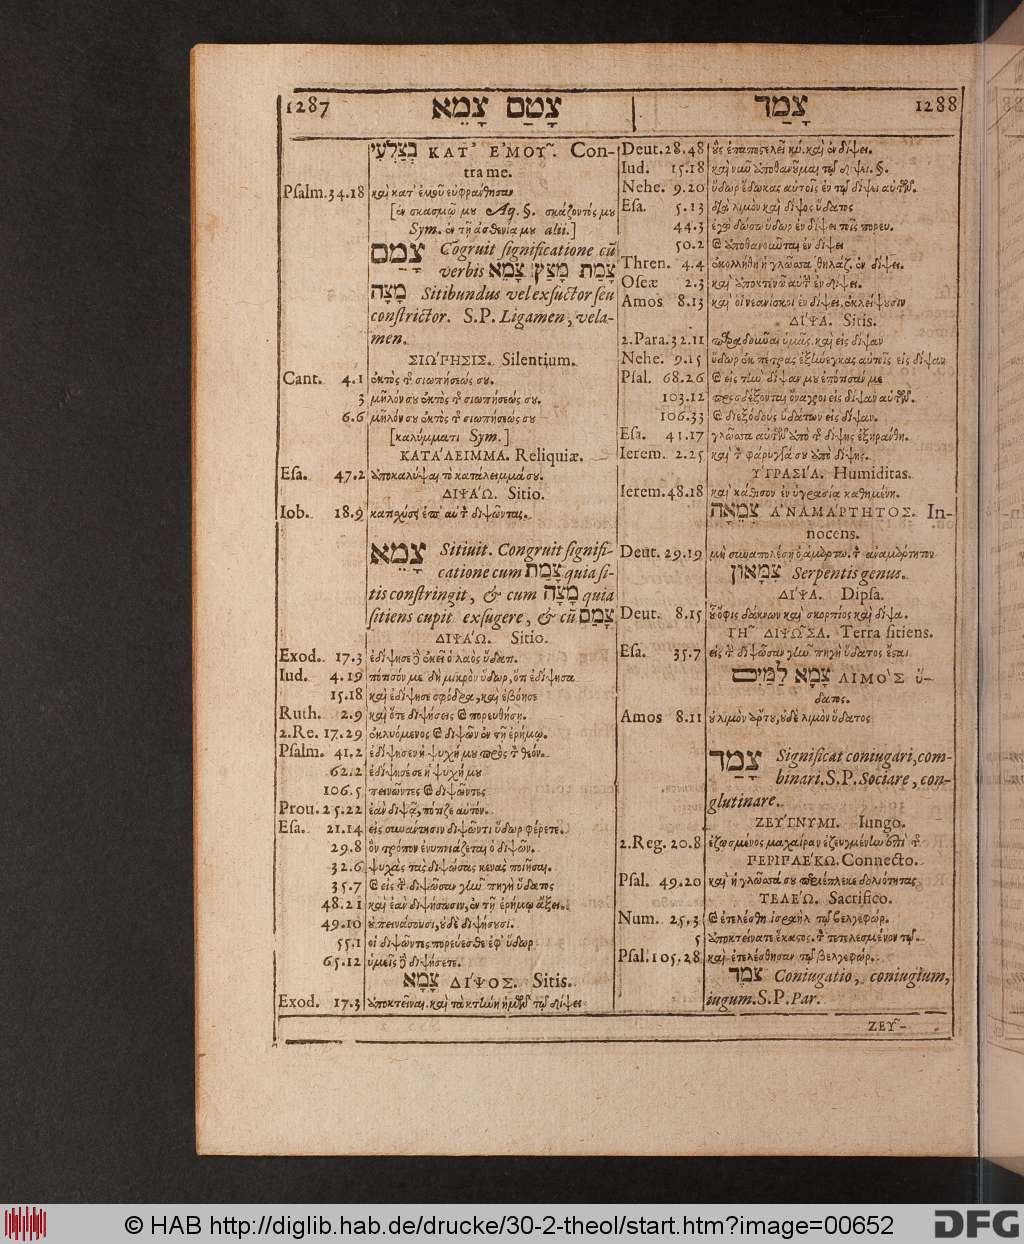 1287 צָמַם צָמֵא
צָמַד 1288
בְצַלְעִי ΚΑΤ' ΕΜΟΥ͂. Con-
tra me.
Psalm. 34.18 καὶ κατ' ἐμοῦ εὐφράνθησαν
Aq. §. σκάζοντός μου
Sym. ἐν τῇ ἀσθενία μου alii.]
צָמַם Cōgruit significatione cū
verbis צָמַת מָצַץ צָמָא
מָצָה Sitibundus vel exsuctor seu
constrictor. S.P. Ligamen, vela-
men.
ΣΙΩΠΗΣΙΣ. Silentium.
Cant. 4.1 ἐκτὸς τῆς σιωπήσεώς σου.
3 μῆλόν σου ἐκτὸς τῆς σιωπήσεώς σου.
6.6 μῆλόν σου ἐκτὸς τῆς σιωπήσεώς σου
[καλύμματι Sym.]
ΚΑΤΑΛΕΙΜΜΑ. Reliquiæ.
Esa. 47.2 ἀποκάλυψαι τὸ κατάλειμμά σου.
ΔΙΨΑΩ. Sitio.
Iob. 18.9 ἐπ' αὐτὸν διψῶντας.
צָמֵא Sitiuit. Congruit signifi-
catione cum צָמַת quia si-
tis constringit, & cum מָצָה quia
sitiens cupit exsugere, & cū צָמַם
ΔΙΨΑΩ. Sitio.
Exod. 17.3 ἐδίψησε δὲ ἐκεῖ ὁ λαὸς ὕδατι.
Iud. 4.19 πότισόν με δὴ μικρὸν ὕδωρ, ὅτι ἐδίψησα
15.18 καὶ ἐδίψησε σφόδρα, καὶ ἐβόησε
Ruth. 2.9 καὶ ὅτε διψήσεις καὶ πορευθήσῃ.
2.Re. 17.29 ἐκλυόμενος καὶ διψῶν ἐν τῇ ἐρήμῳ.
Psalm. 41.2 ἐδίψησεν ἡ ψυχή μου πρὸς τὸν θεόν.
62.2 ἐδίψησέ σε ἡ ψυχή μου
106.5 πεινῶντες καὶ διψῶντες
Prou. 25.22 ἐὰν διψᾷ, πότιζε αὐτόν.
Esa. 21.14 εἰς συνάντησιν διψῶντι ὕδωρ φέρετε.
29.8 ὃν τρόπον ἐνυπνιάζεται ὁ διψῶν.
32.6 ψυχὰς τὰς διψώσας κενὰς ποιῆσαι.
35.7 καὶ εἰς τὴν διψῶσαν γῆν πηγὴ ὕδατος
48.21 καὶ ἐὰν διψήσωσιν, ἐν τῇ ἐρήμῳ ἄξει.
49.10 οὐ πεινάσουσι, οὐδὲ διψήσουσι.
55.1 οἱ διψῶντες πορεύεσθε ἐφ' ὕδωρ
65.12 ὑμεῖς δὲ διψήσετε.
צָמָא ΔΙΨΟΣ. Sitis.
Exod. 17.3 ἀποκτεῖναι καὶ τὰ κτήνη ἡμῶν τῷ δίψει
Deut. 28.48 οὓς ἐπαποστελεῖ κύ. καὶ ἐν δίψει.
Iud. 15.18 καὶ νῦν ἀποθανοῦμαι τῷ δίψει. §.
Nehe. 9.20 ὕδωρ ἔδωκας αὐτοῖς ἐν τῷ δίψει αὐτῶν.
Esa. 5.13 διὰ λιμὸν καὶ δίψος ὕδατος
44.3 ἐγὼ δώσω ὕδωρ ἐν δίψει τοῖς πορευ.
50.2 καὶ ἀποθανοῦνται ἐν δίψει
Thren. 4.4 ἐκολλήθη ἡ γλῶσσα θηλάζ. ἐν δίψει.
Oseæ 2.3 καὶ ἀποκτενῶ αὐτὴν ἐν δίψει.
Amos 8.13 καὶ οἱ νεανίσκοι ἐν δίψει, ἐκλείψουσιν
ΔΙΨΑ. Sitis.
2.Para. 32.11 παραδοῦναι ὑμᾶς καὶ εἰς δίψαν
Nehe. 9.15 ὕδωρ ἐκ πέτρας ἐξήνεγκας αὐτοῖς εἰς δίψαν
Psal. 68.26 καὶ εἰς τὴν δίψαν μου ἐπότισάν με
103.12 προσδέξονται ὄναγροι εἰς δίψαν αὐτῶν.
106.33 καὶ διεξόδους ὑδάτων εἰς δίψαν.
Esa. 41.17 γλῶσσα αὐτῶν ἀπὸ τῆς δίψης ἐξηράνθη.
Ierem. 2.25 καὶ τὸν φάρυγγά σου ἀπὸ δίψης.
ΥΓΡΑΣΙΑ. Humiditas.
Ierem. 48.18 καὶ κάθισον ἐν ὑγρασίᾳ καθημένη.
צִמְאָה ΑΝΑΜΑΡΤΗΤΟΣ. In-
nocens.
Deut. 29.19 μὴ συναπολέσῃ ὁ ἁμαρτω. τὸν ἀναμάρτητον
צִמָּאוֹן Serpentis genus.
ΔΙΨΑ. Dipsa.
Deut. 8.15 ὄφις δάκνων καὶ σκορπίος καὶ δίψα.
ΓΗ ΔΙΨΩΣΑ. Terra sitiens.
Esa. 35.7 εἰς τὴν διψῶσαν γῆν πηγὴ ὕδατος ἔσται
צָמָא לַמַּיִם ΛΙΜΟΣ ὕ-
δατος.
Amos 8.11 οὐ λιμὸν ἄρτου, οὐδὲ λιμὸν ὕδατος
צָמַד Significat coniugari, com-
binari. S.P. Sociare, con-
glutinare.
ΖΕΥΓΝΥΜΙ. Iungo.
2.Reg. 20.8 ἐζωσμένος μάχαιραν ἐζευγμένην ἐπὶ τ
ΠΕΡΙΠΛΕΚΩ. Connecto.
Psal. 49.20 καὶ ἡ γλῶσσά σου περιέπλεκε δολιότητας
ΤΕΛΕΩ. Sacrifico.
Num. 25.3 καὶ ἐτελέσθη ἰσραὴλ τῷ βεελφεγώρ.
5 ἀποκτείνατε ἕκαστος τὸν τετελεσμένον τῷ.
Psal. 105.28 καὶ ἐτελέσθησαν τῷ βεελφεγώρ.
צֶמֶד Coniugatio, coniugium,
iugum. S.P. Par.
ΖΕΥ͂-
© HAB http://diglib.hab.de/drucke/30-2-theol/start.htm?image=00652
DFG